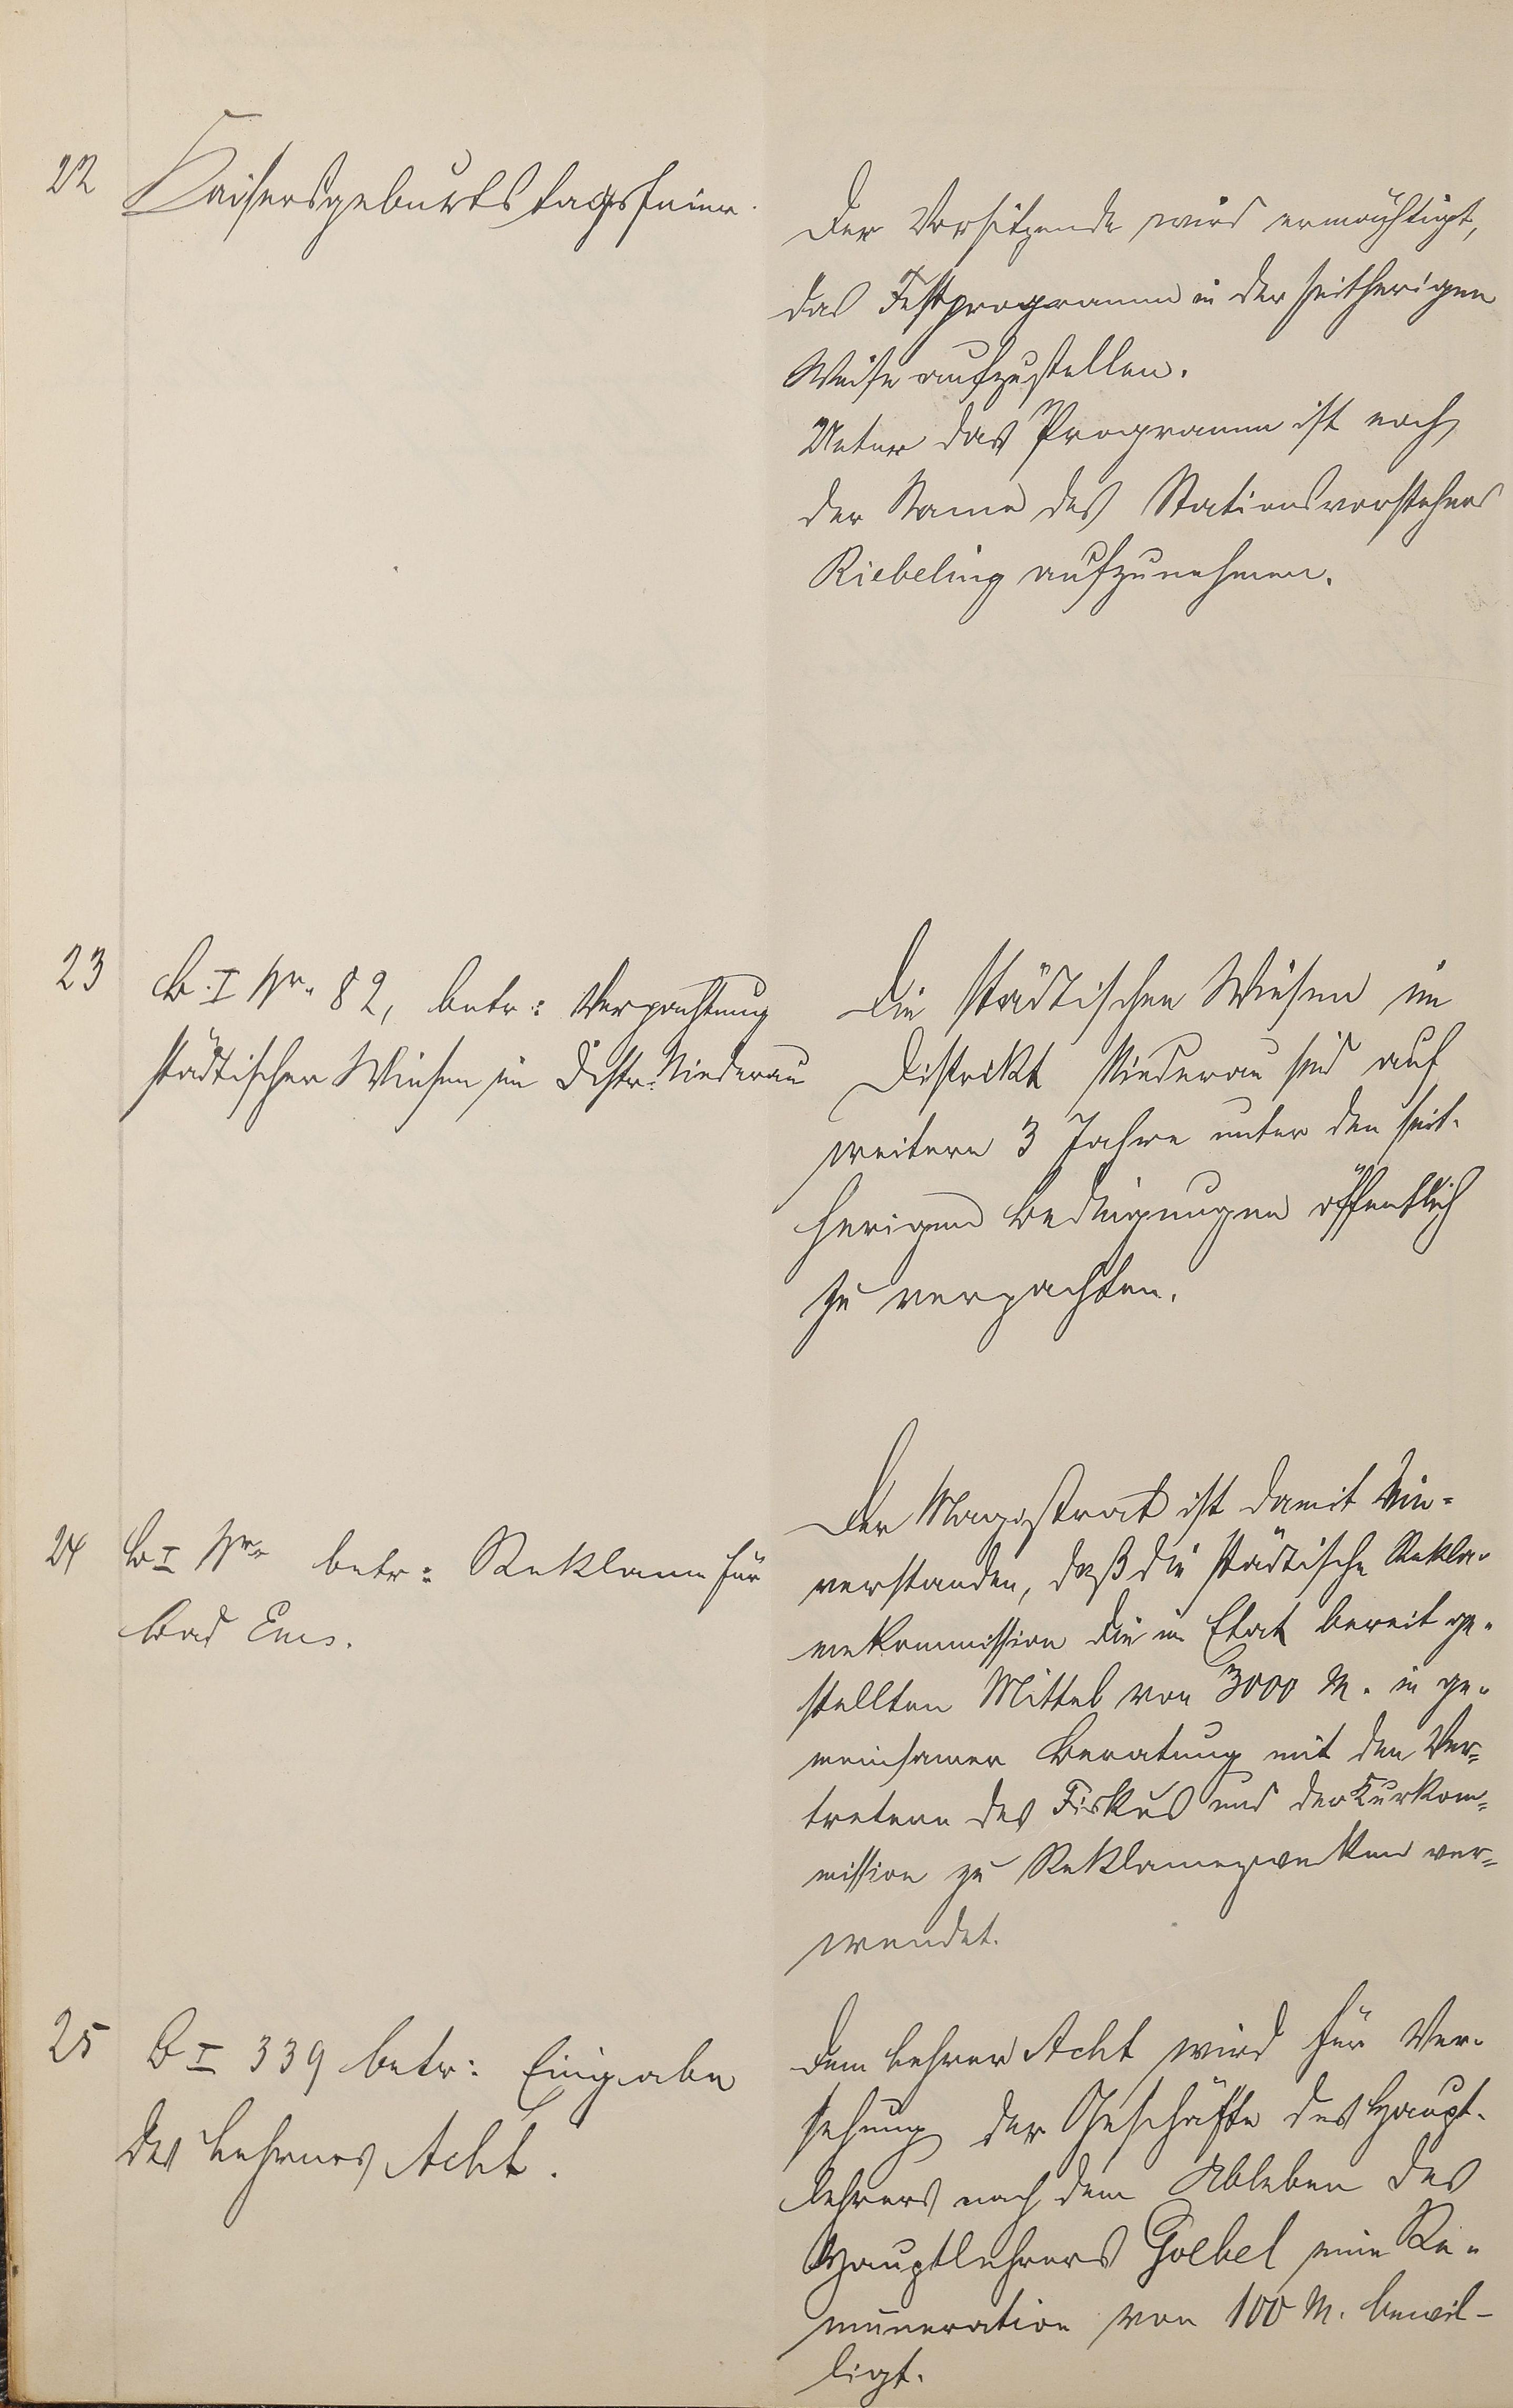 22 Kaisersgeburtstagsfeier.
Der Vorsitzende wird ermächtigt,
das Festprogramm in der seitherigen
Weise aufzustellen.
Unter das Programm ist noch
der Name des Stationsvorstehers
Riebeling aufzunehmen.
23 B. I Nr. 82, betr: Verpachtung
städtischer Wiesen im Distr. Niederau
Die städtischen Wiesen im
Distrikt Niederau sind auf
weitere 3 Jahre unter den seit-
herigen Bedingungen öffentlich
zu verpachten.
24 B I Nr. betr: Reklame für
Bad Ems.
Der Magistrat ist damit ein-
verstanden, daß die städtische Rekla-
mekommission die im Etat bereit ge-
stellten Mittel von 3000 M. in ge-
meinsamer Beratung mit den Ver-
tretern des Fiskus und der Kurkom-
mission zu Reklamezwecken ver-
wendet.
25 B I 339 betr: Eingabe
des Lehrers Acht.
Dem Lehrer Acht wird für Ver-
sehung der Geschäfte des Haupt-
lehrers nach dem Ableben des
Hauptlehrers Goebel eine Re-
muneration von 100 M. bewil-
ligt.